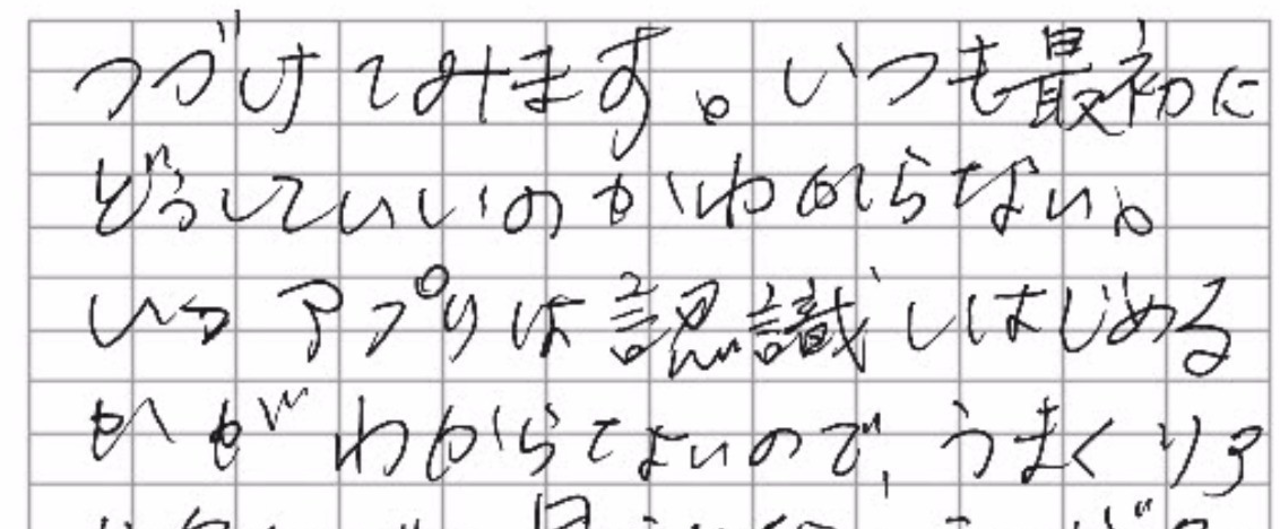 つづけてみます。いつも最初に
どうしていいのかわからない。
いつアプリは認識しはじめる
かがわからないので、うまくリア